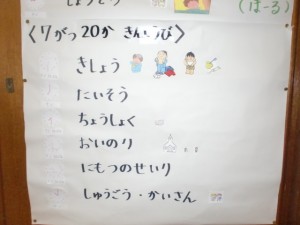 (ぱーる)
〈7がつ20か きんようび〉
きしょう
たいそう
ちょうしょく
おいのり
にもつのせいり
しゅうごう・かいさん